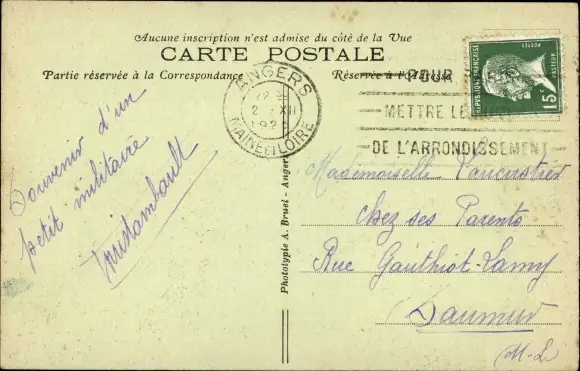 Aucune inscription n'est admise du côté de la Vue
CARTE POSTALE
Partie réservée à la Correspondance
Réservée à l'Adresse
ANGERS
XII
MAINE ET LOIRE
POUR
METTRE LE
DE L'ARRONDISSEMENT
REPUBLIQUE FRANÇAISE
POSTES
PASTEUR
15c
Souvenir d'un
petit militaire
Mademoiselle
chez ses Parents
Rue Gauthiot-Lamy
Saumur
M-L
Phototypie A. Bruel - Angers